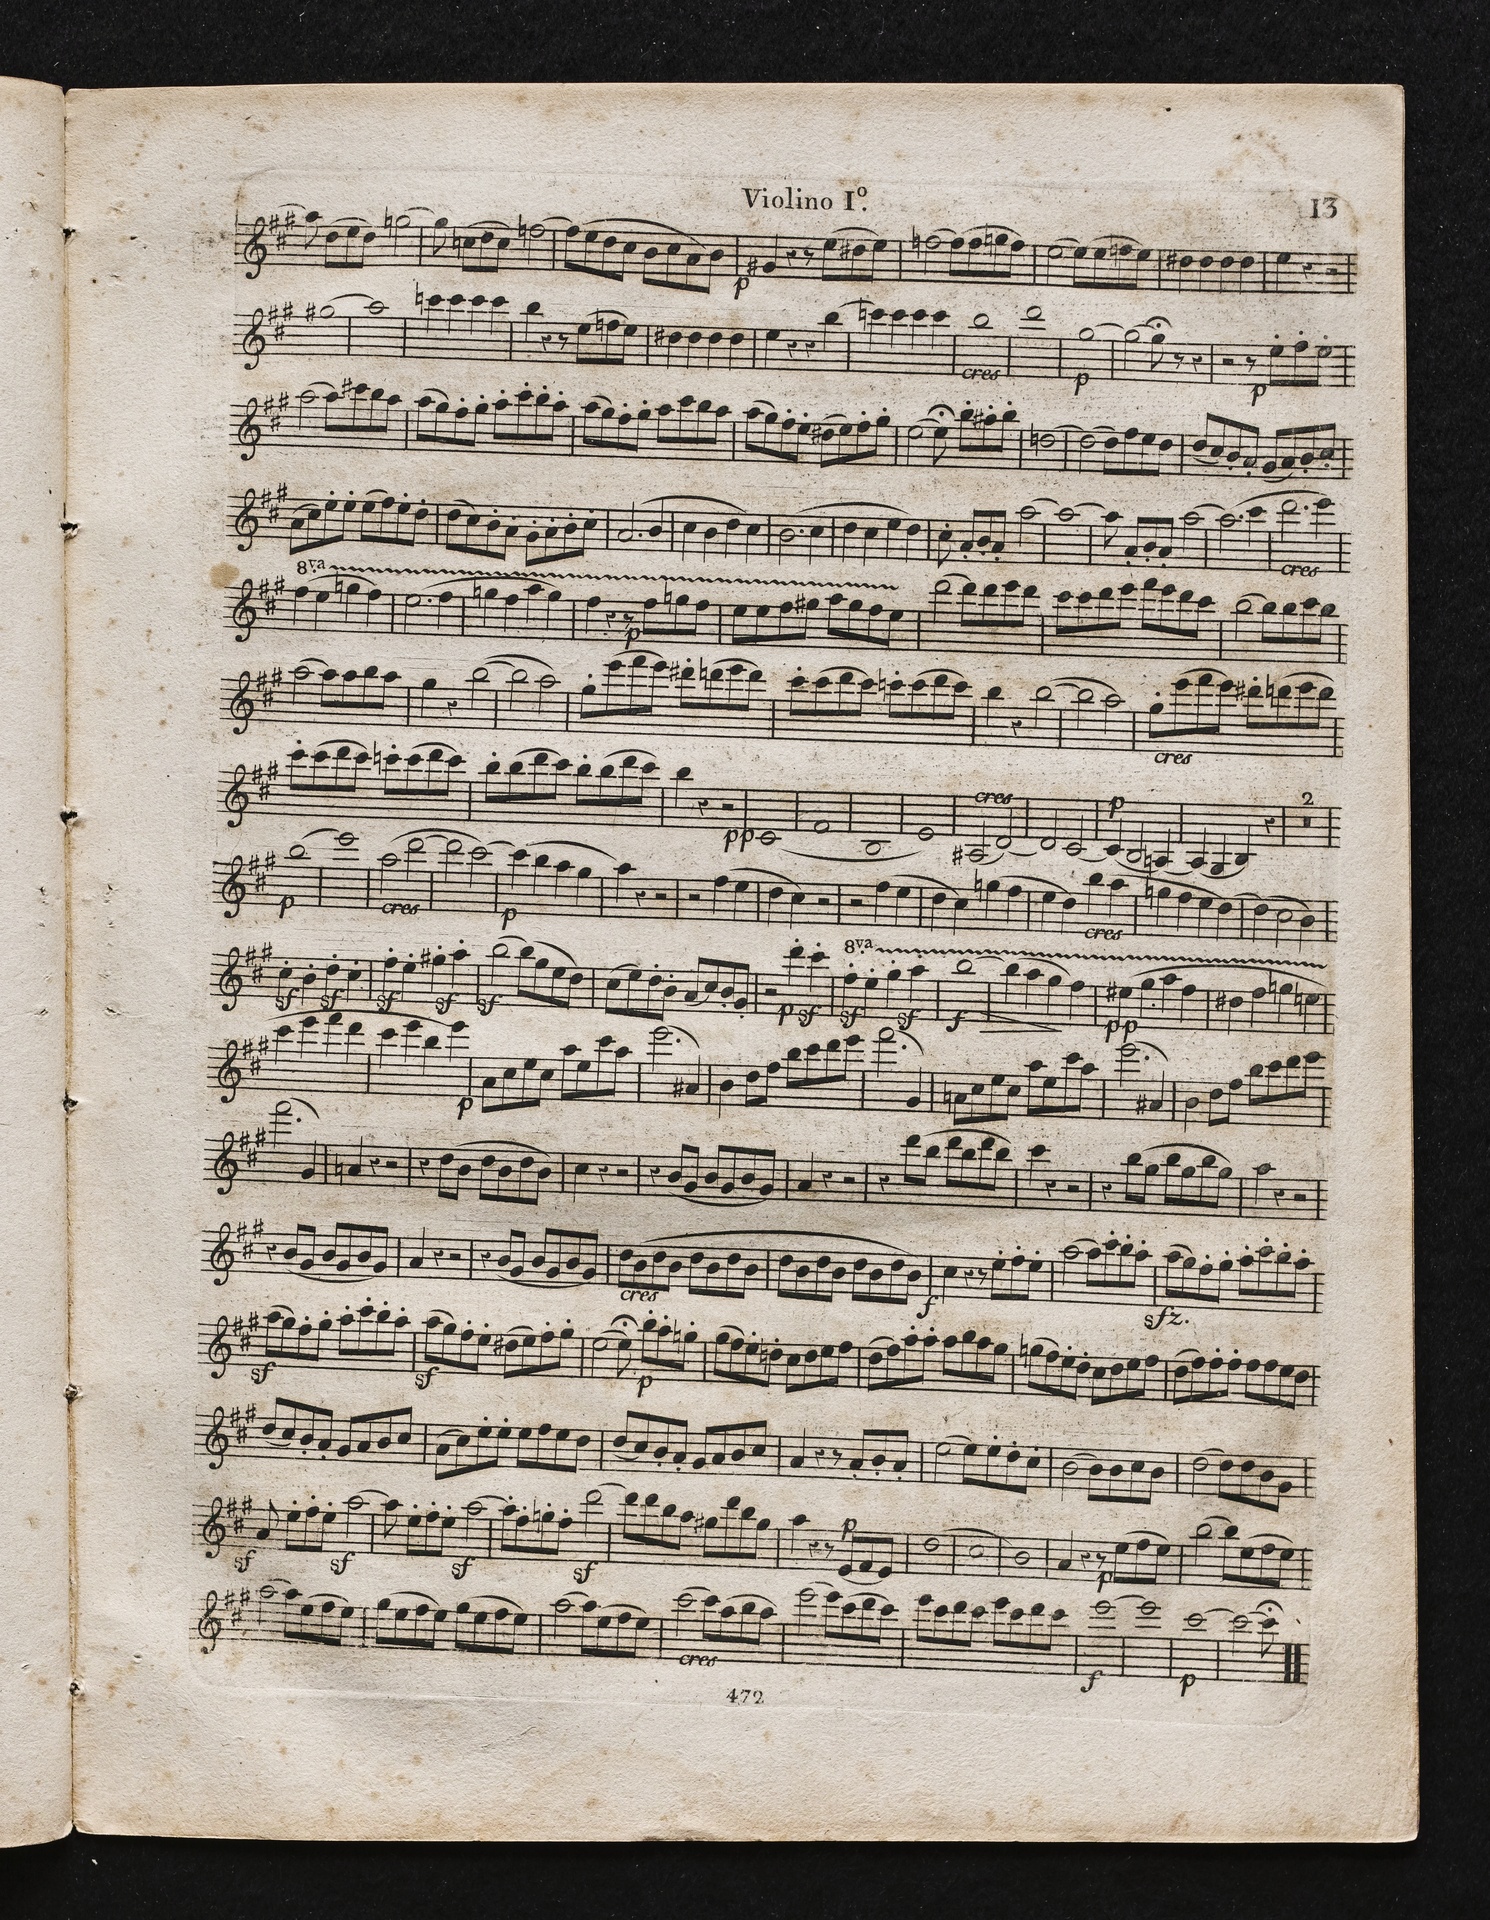 Violino Iº. 13
p
cres p p
cres
8va p
cres
pp cres p 2
p cres p cres
sf sf sf sf sf p sf 8va sf sf f pp
p
cres f sfz.
sf sf p
sf sf sf sf p p
cres f p
472